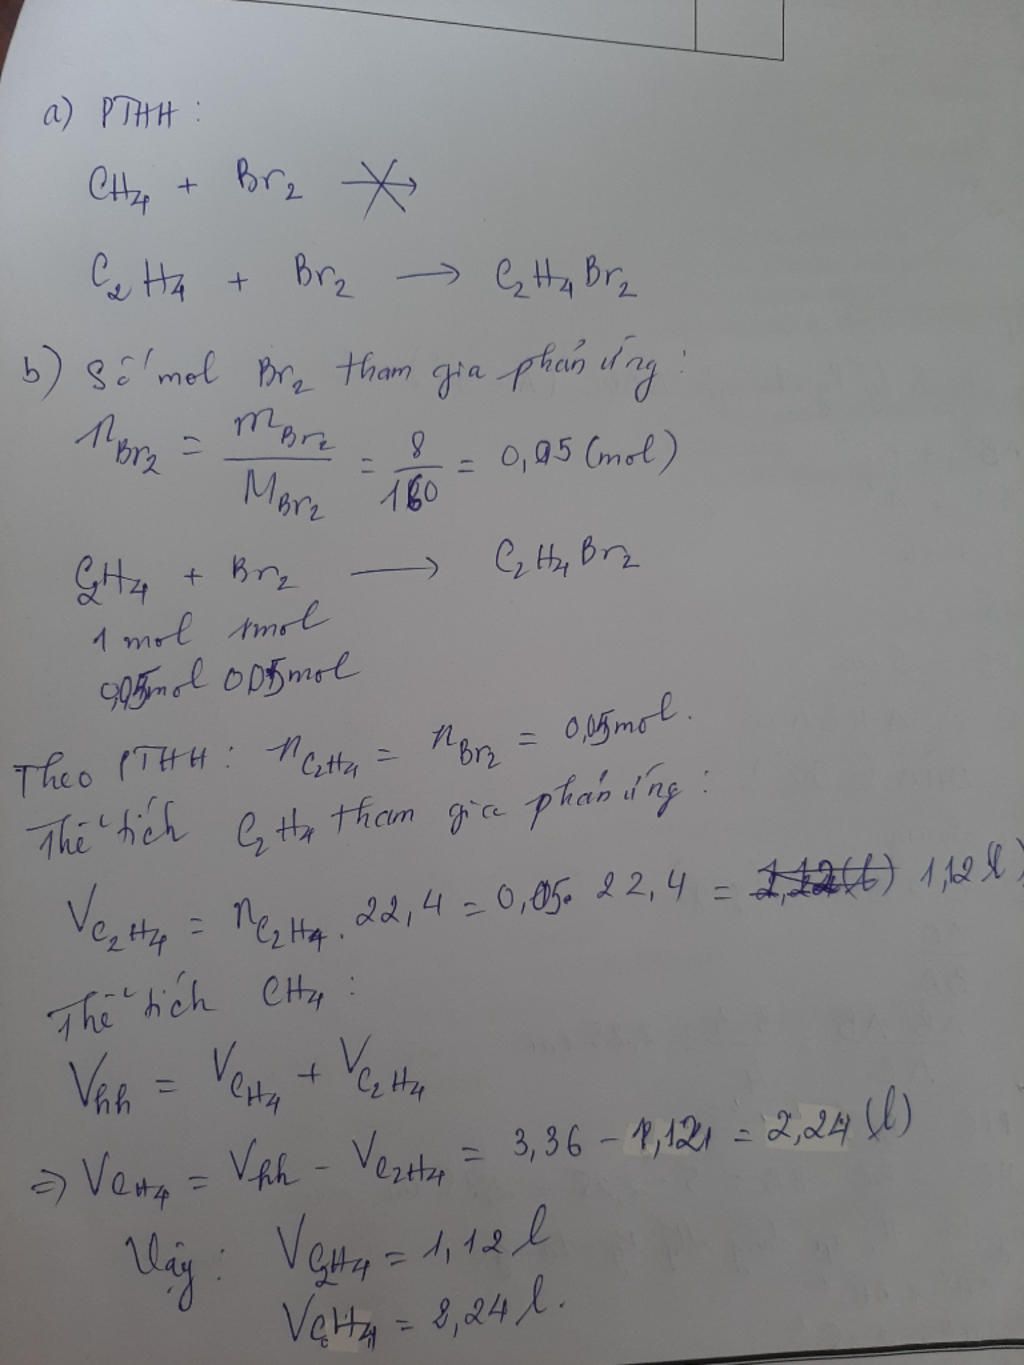 a) PTHH :
CH4 + Br2 ↛
C2H4 + Br2 → C2H4Br2
b) Số mol Br2 tham gia phản ứng :
nBr2 = mBr2 / MBr2 = 8 / 160 = 0,05 (mol)
C2H4 + Br2 → C2H4Br2
1 mol 1mol
0,05mol 0,05mol
Theo PTHH : nC2H4 = nBr2 = 0,05mol.
Thể tích C2H4 tham gia phản ứng :
VC2H4 = nC2H4 . 22,4 = 0,05. 22,4 = 1,12 l)
Thể tích CH4 :
Vhh = VCH4 + VC2H4
=> VCH4 = Vhh - VC2H4 = 3,36 - 1,12 = 2,24 (l)
Vậy : VC2H4 = 1,12 l
VCH4 = 2,24 l.